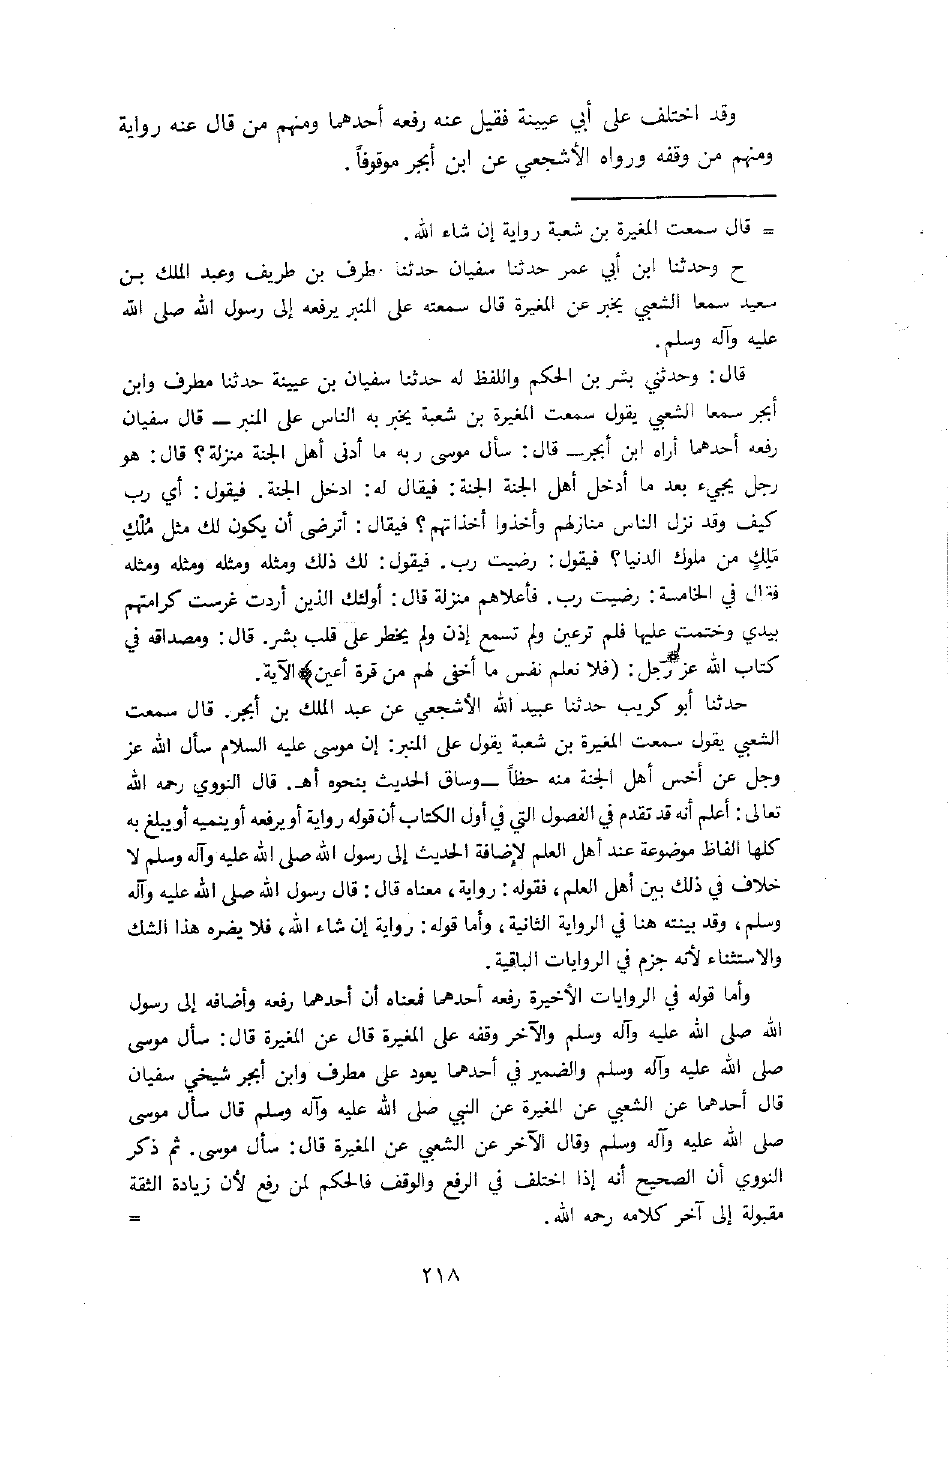 وقد اختلف على أبي عيينة فقيل عنه رفعه أحدهما ومنهم من قال عنه رواية
ومنهم من وقفه ورواه الأشجعي عن ابن أبجر موقوفاً .
= قال سمعت المغيرة بن شعبة رواية إن شاء الله .
ح وحدثنا ابن أبي عمر حدثنا سفيان حدثنا مطرف بن طريف وعبد الملك بن
سعيد سمعا الشعبي يخبر عن المغيرة قال سمعته على المنبر يرفعه إلى رسول الله صلى الله
عليه وآله وسلم .
قال : وحدثني بشر بن الحكم واللفظ له حدثنا سفيان بن عيينة حدثنا مطرف وابن
أبجر سمعا الشعبي يقول سمعت المغيرة بن شعبة يخبر به الناس على المنبر ــ قال سفيان
رفعه أحدهما أراه ابن أبجر ــ قال : سأل موسى ربه ما أدنى أهل الجنة منزلة ؟ قال : هو
رجل يجيء بعد ما أدخل أهل الجنة الجنة : فيقال له : ادخل الجنة . فيقول : أي رب
كيف وقد نزل الناس منازلهم وأخذوا أخذاتهم ؟ فيقال : أترضى أن يكون لك مثل مُلْكِ
مَلِكٍ من ملوك الدنيا ؟ فيقول : رضيت رب . فيقول : لك ذلك ومثله ومثله ومثله ومثله
فقال في الخامسة : رضيت رب . فأعلاهم منزلة قال : أولئك الذين أردت غرست كرامتهم
بيدي وختمت عليها فلم ترعين ولم تسمع إذن ولم يخطر على قلب بشر . قال : ومصداقه في
كتاب الله عز وجل : (فلا نعلم نفس ما أخفى لهم من قرة أعين﴾ الآية .
حدثنا أبو كريب حدثنا عبيد الله الأشجعي عن عبد الملك بن أبجر . قال سمعت
الشعبي يقول سمعت المغيرة بن شعبة يقول على المنبر : إن موسى عليه السلام سأل الله عز
وجل عن أخس أهل الجنة منه حظاً ــ وساق الحديث بنحوه أهـ . قال النووي رحمه الله
تعالى : أعلم أنه قد تقدم في الفصول التي في أول الكتاب أن قوله رواية أو يرفعه أو ينميه أو يبلغ به
كلها الفاظ موضوعة عند أهل العلم لإضافة الحديث إلى رسول الله صلى الله عليه وآله وسلم لا
خلاف في ذلك بين أهل العلم ، فقوله : رواية ، معناه قال : قال رسول الله صلى الله عليه وآله
وسلم ، وقد بينته هنا في الرواية الثانية ، وأما قوله : رواية إن شاء الله ، فلا يضره هذا الشك
والاستثناء لأنه جزم في الروايات الباقية .
وأما قوله في الروايات الأخيرة رفعه أحدهما فمعناه أن أحدهما رفعه وأضافه إلى رسول
الله صلى الله عليه وآله وسلم والآخر وقفه على المغيرة قال عن المغيرة قال : سأل موسى
صلى الله عليه وآله وسلم والضمير في أحدهما يعود على مطرف وابن أبجر شيخي سفيان
قال أحدهما عن الشعبي عن المغيرة عن النبي صلى الله عليه وآله وسلم قال سأل موسى
صلى الله عليه وآله وسلم وقال الآخر عن الشعبي عن المغيرة قال : سأل موسى . ثم ذكر
النووي أن الصحيح أنه إذا اختلف في الرفع والوقف فالحكم لمن رفع لأن زيادة الثقة
مقبولة إلى آخر كلامه رحمه الله . =
٢١٨